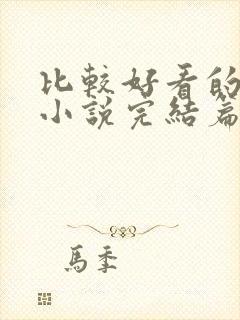 比較好看的
小說完結篇
馬季